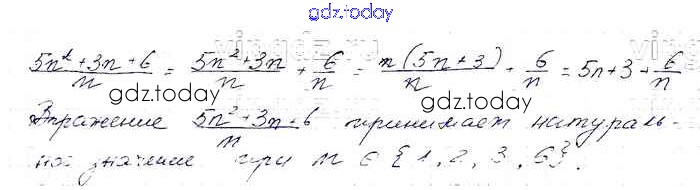 gdz.today
(5n²+3n+6)/n = (5n²+3n)/n + 6/n = n(5n+3)/n + 6/n = 5n+3+6/n
gdz.today
gdz.today
Выражение (5n²+3n+6)/n принимает натураль-
ное значение при n ∈ {1, 2, 3, 6}.
gdz.today